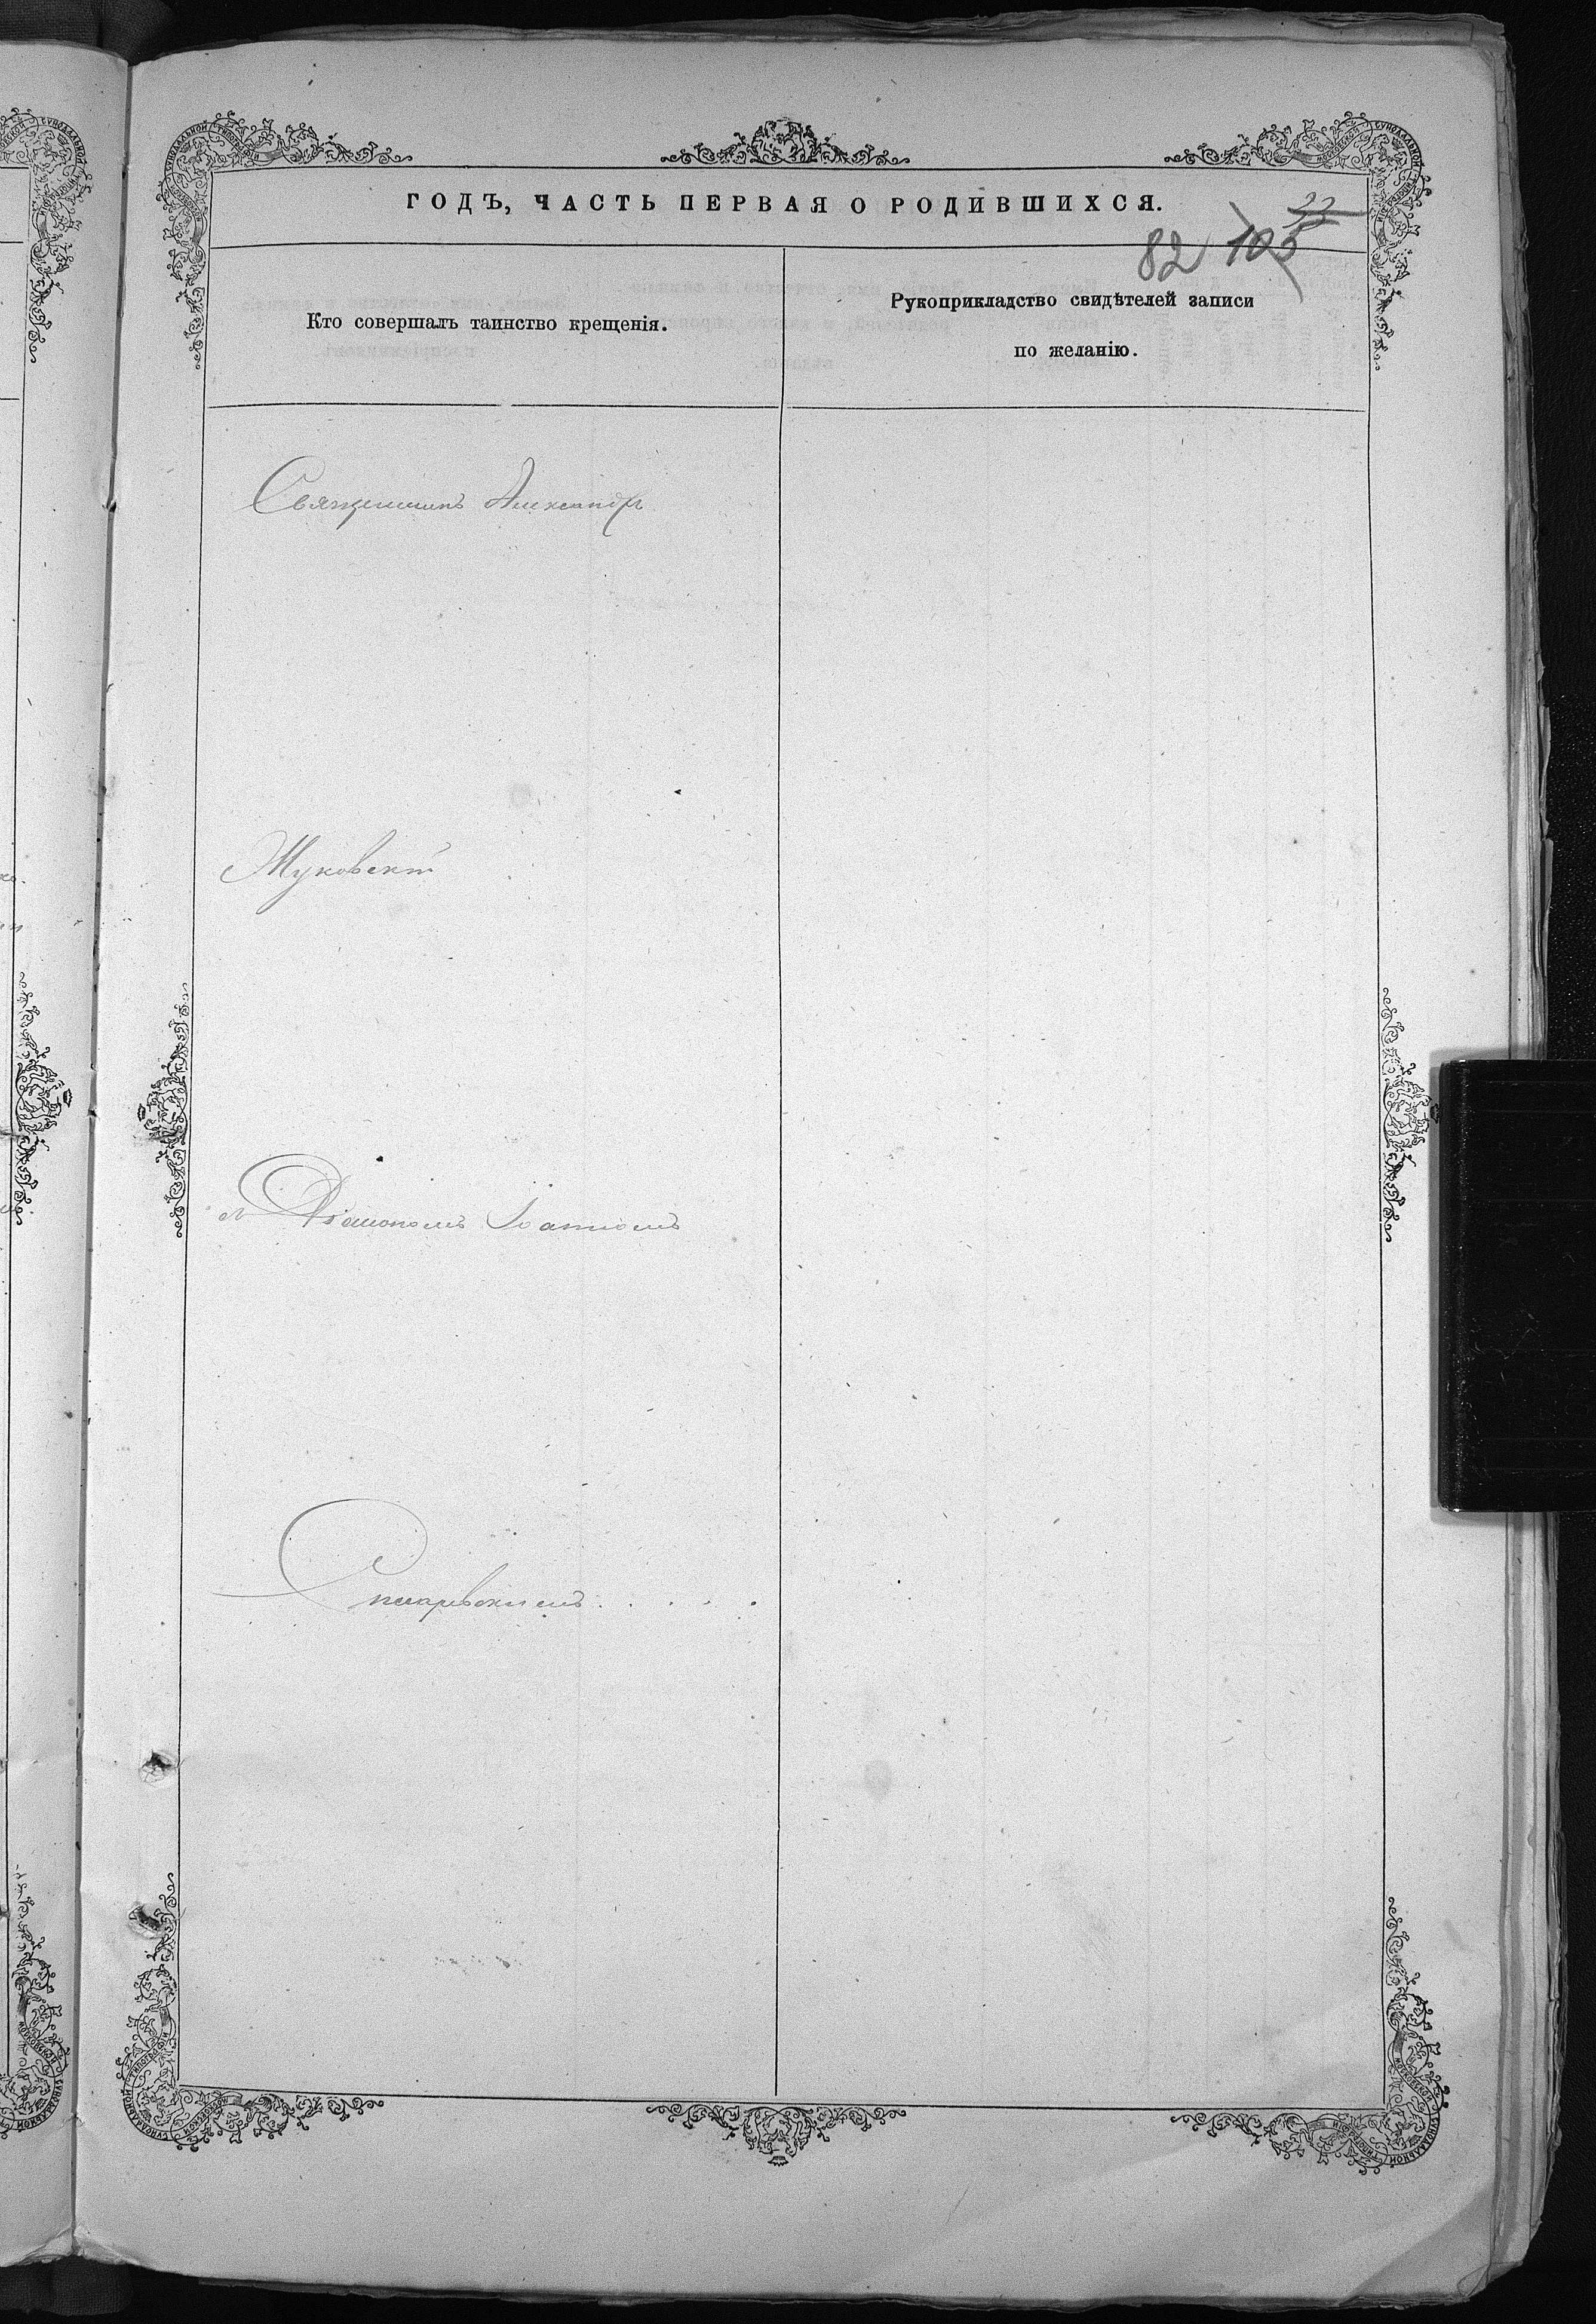 ГОДЪ, ЧАСТЬ ПЕРВАЯ О РОДИВШИХСЯ.
22
82 105
Кто совершалъ таинство крещенія.
Рукоприкладство свидѣтелей записи
по желанію.
Священникъ Александръ
Жуковскій
съ Діакономъ Іоанномъ